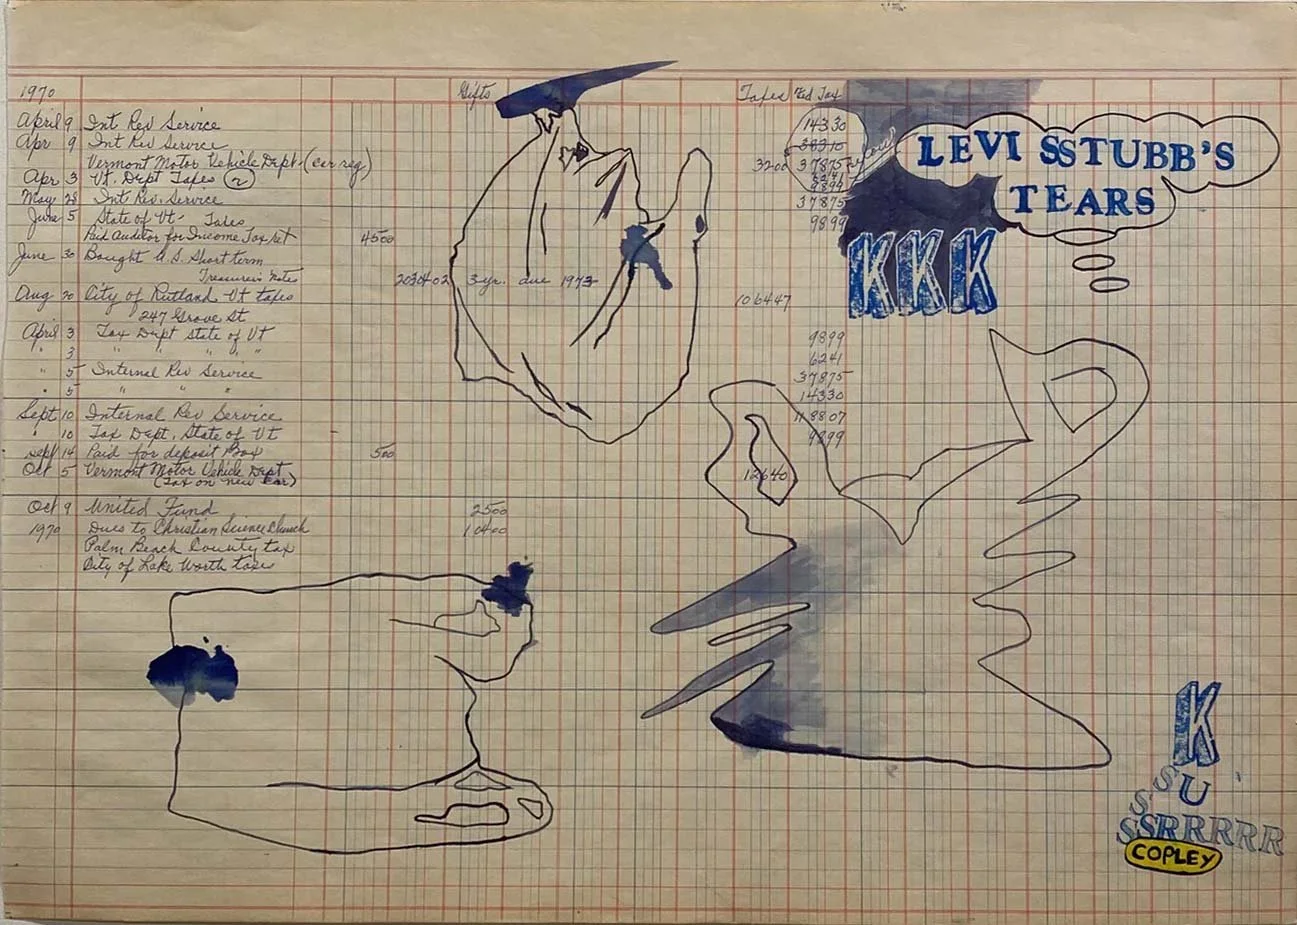 1970 Gifts Taxes Fed Tax
April 9 Int Rev Service 14330
Apr 9 Int Rev Service 38310
Vermont Motor Vehicle Dept. (car reg) 3200 37875
Apr 3 Vt. Dept Taxes (2) 9899
May 28 Int Rev. Service 37875
June 5 State of Vt. Taxes 9899
Paid Auditor for Income Tax ret 4500
June 30 Bought U.S. Short term
Treasurer's Notes 203402 3 yr. due 1973
Aug 20 City of Rutland Vt taxes 106447
247 Grove St
April 3 Tax Dept State of Vt 9899
" 3 " " " " 6241
" 5 Internal Rev Service 37875
" 5 " " " 14330
Sept 10 Internal Rev Service 118807
" 10 Tax Dept. State of Vt 9899
Sept 14 Paid for deposit Box 500
Oct 5 Vermont Motor Vehicle Dept 12640
(Tax on new car)
Oct 9 United Fund 2500
1970 Dues to Christian Science Church 10400
Palm Beach County tax
City of Lake Worth taxes
LEVI SSTUBB'S
TEARS
KKK
K
S U
S
SSRRRRR
COPLEY